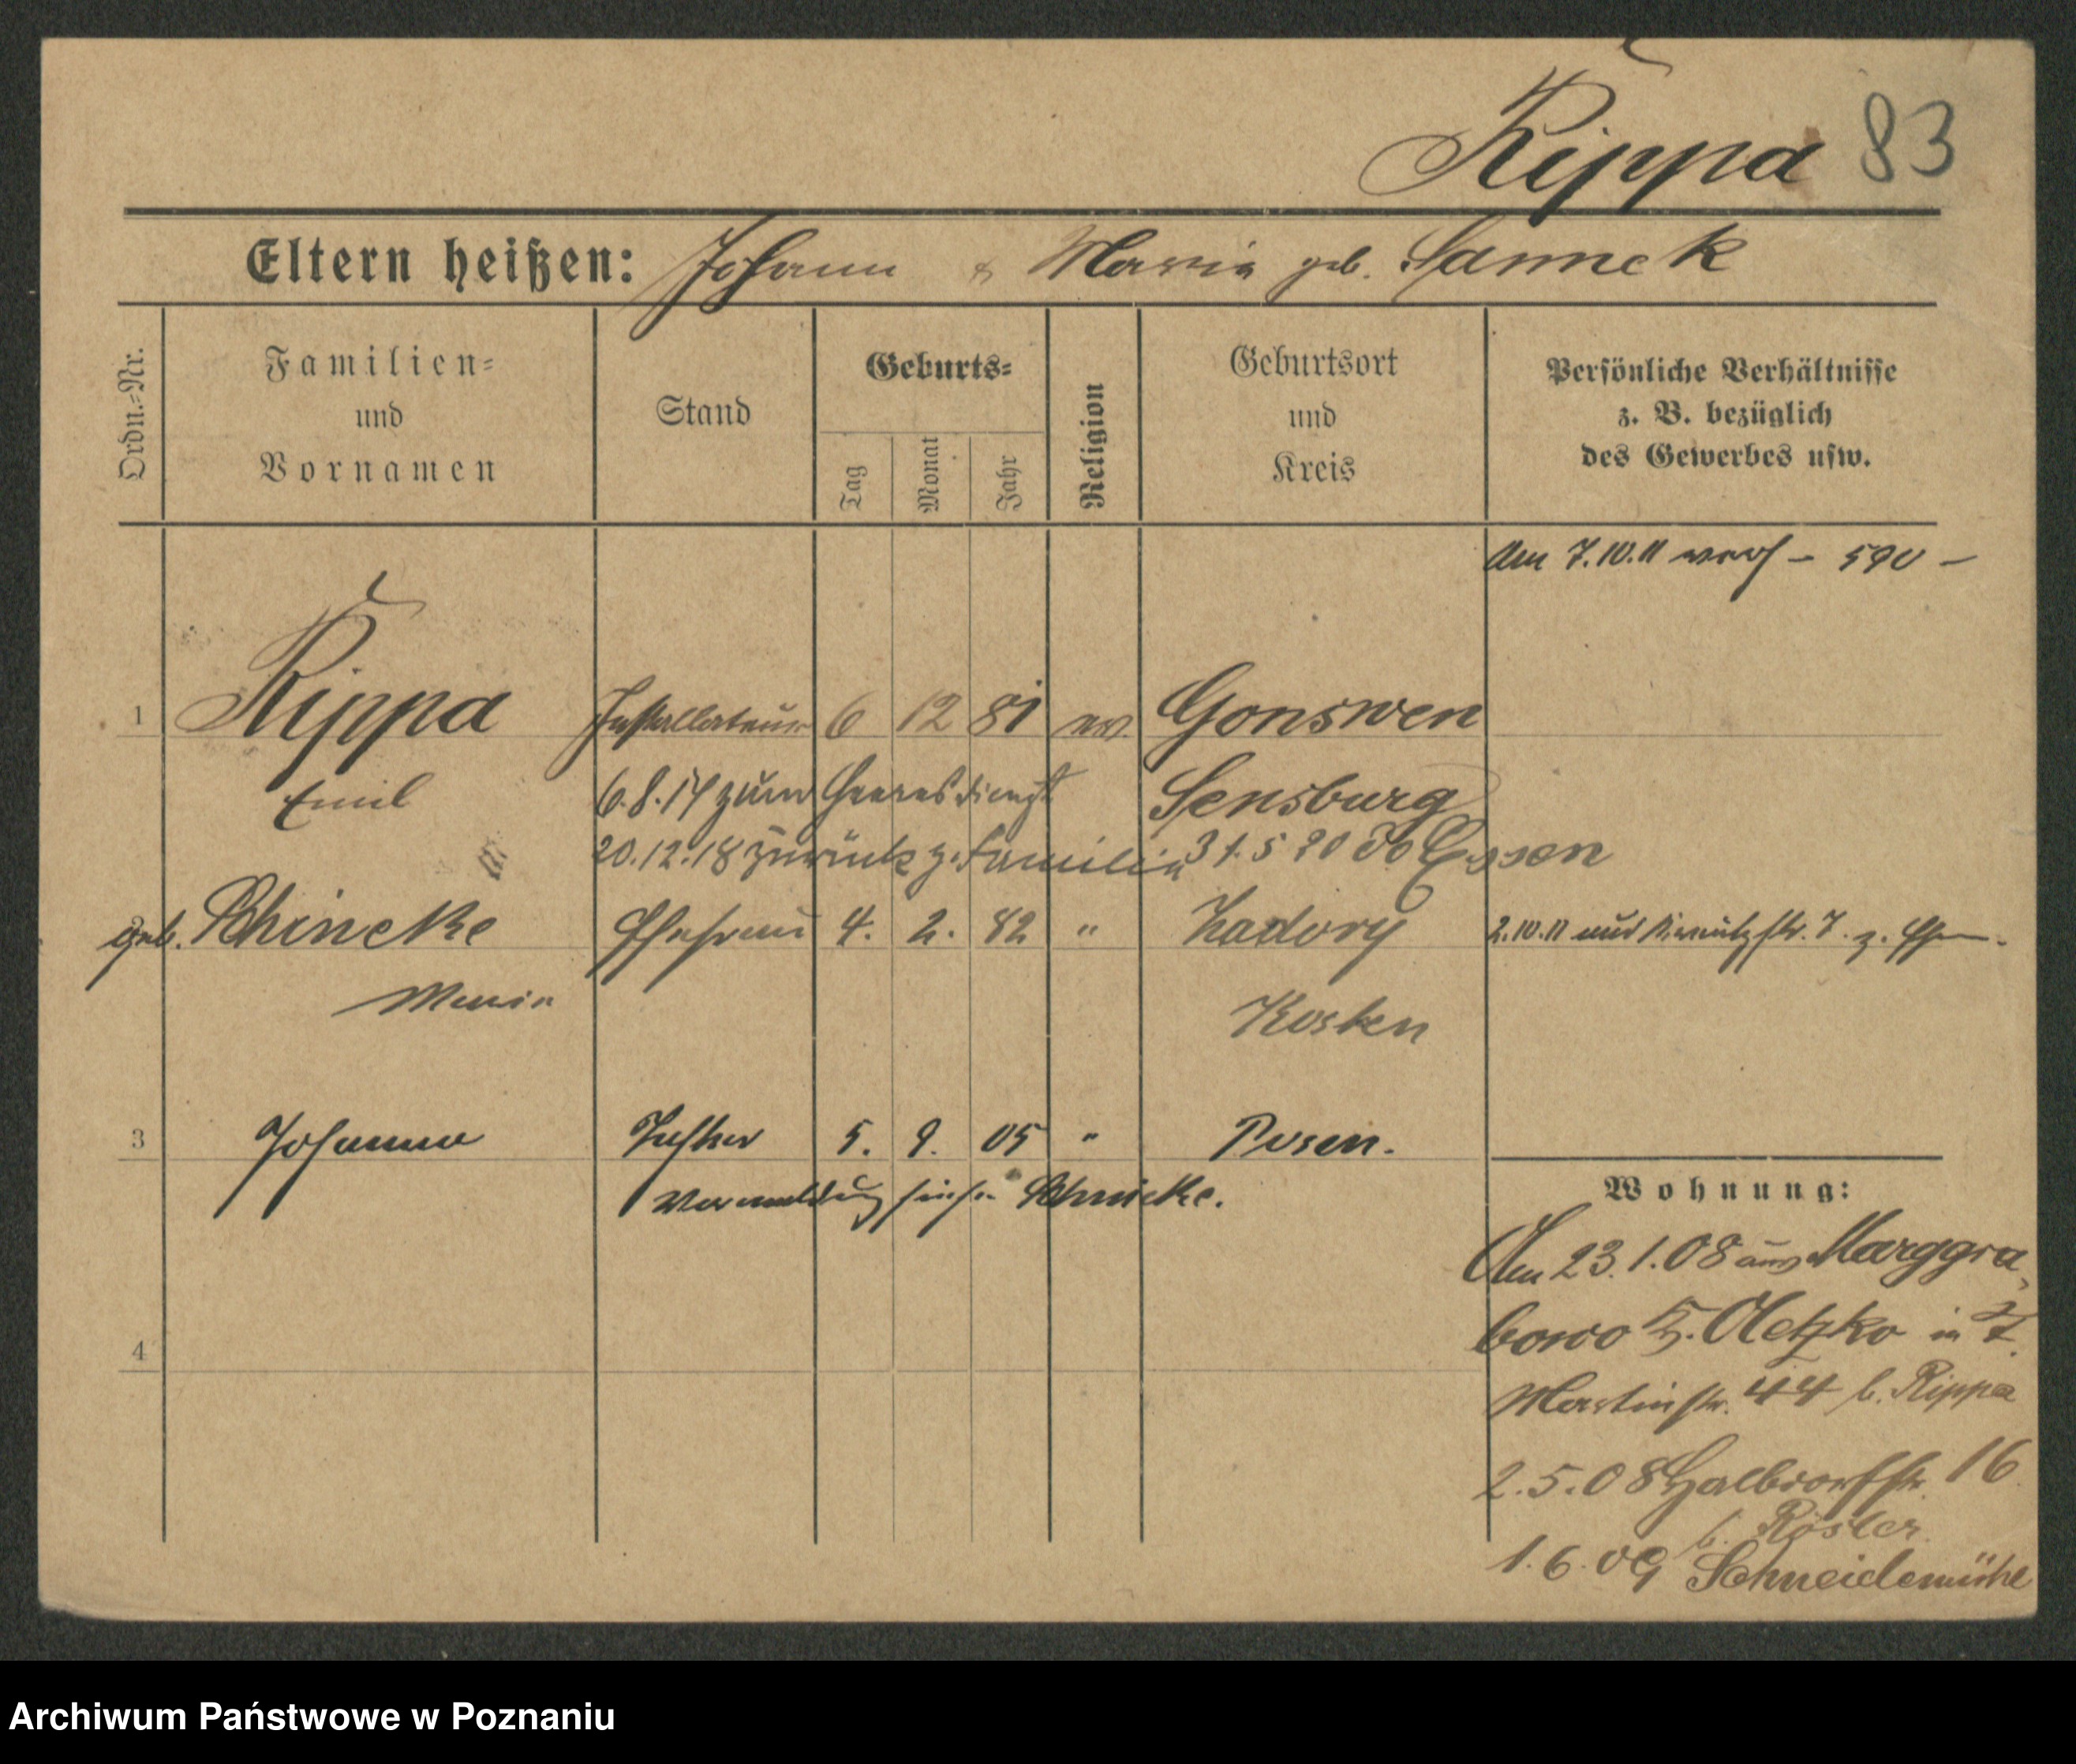 Rippa 83
Eltern heißen: Johann & Maria geb. Sanneck
Ordn.-Nr.
Familien-
und
Vornamen
Stand
Geburts-
Tag
Monat
Jahr
Religion
Geburtsort
und
Kreis
Persönliche Verhältnisse
z. B. bezüglich
des Gewerbes usw.
Am 7.10.11 – 590 –
1 Rippa Installateur 6 12 81 ev. Gonswen
Emil 6.8.14 zum Heeresdienst Sensburg
20.12.18 zurück z. Familie 31.5 20 Essen
2 geb. Schincke Ehefrau 4. 2. 82 " Zadory 2.10.11
Maria Kosten
3 Johanna Tochter 5. 9. 05 " Posen.
4
Wohnung:
Am 23.1.08 aus Marggra-
bowo Oletzko in
Martinstr. 44 b. Rippa
2.5.08 Halbdorfstr. 16
b. Rösler
1.6.09 Schneidemühl
Archiwum Państwowe w Poznaniu